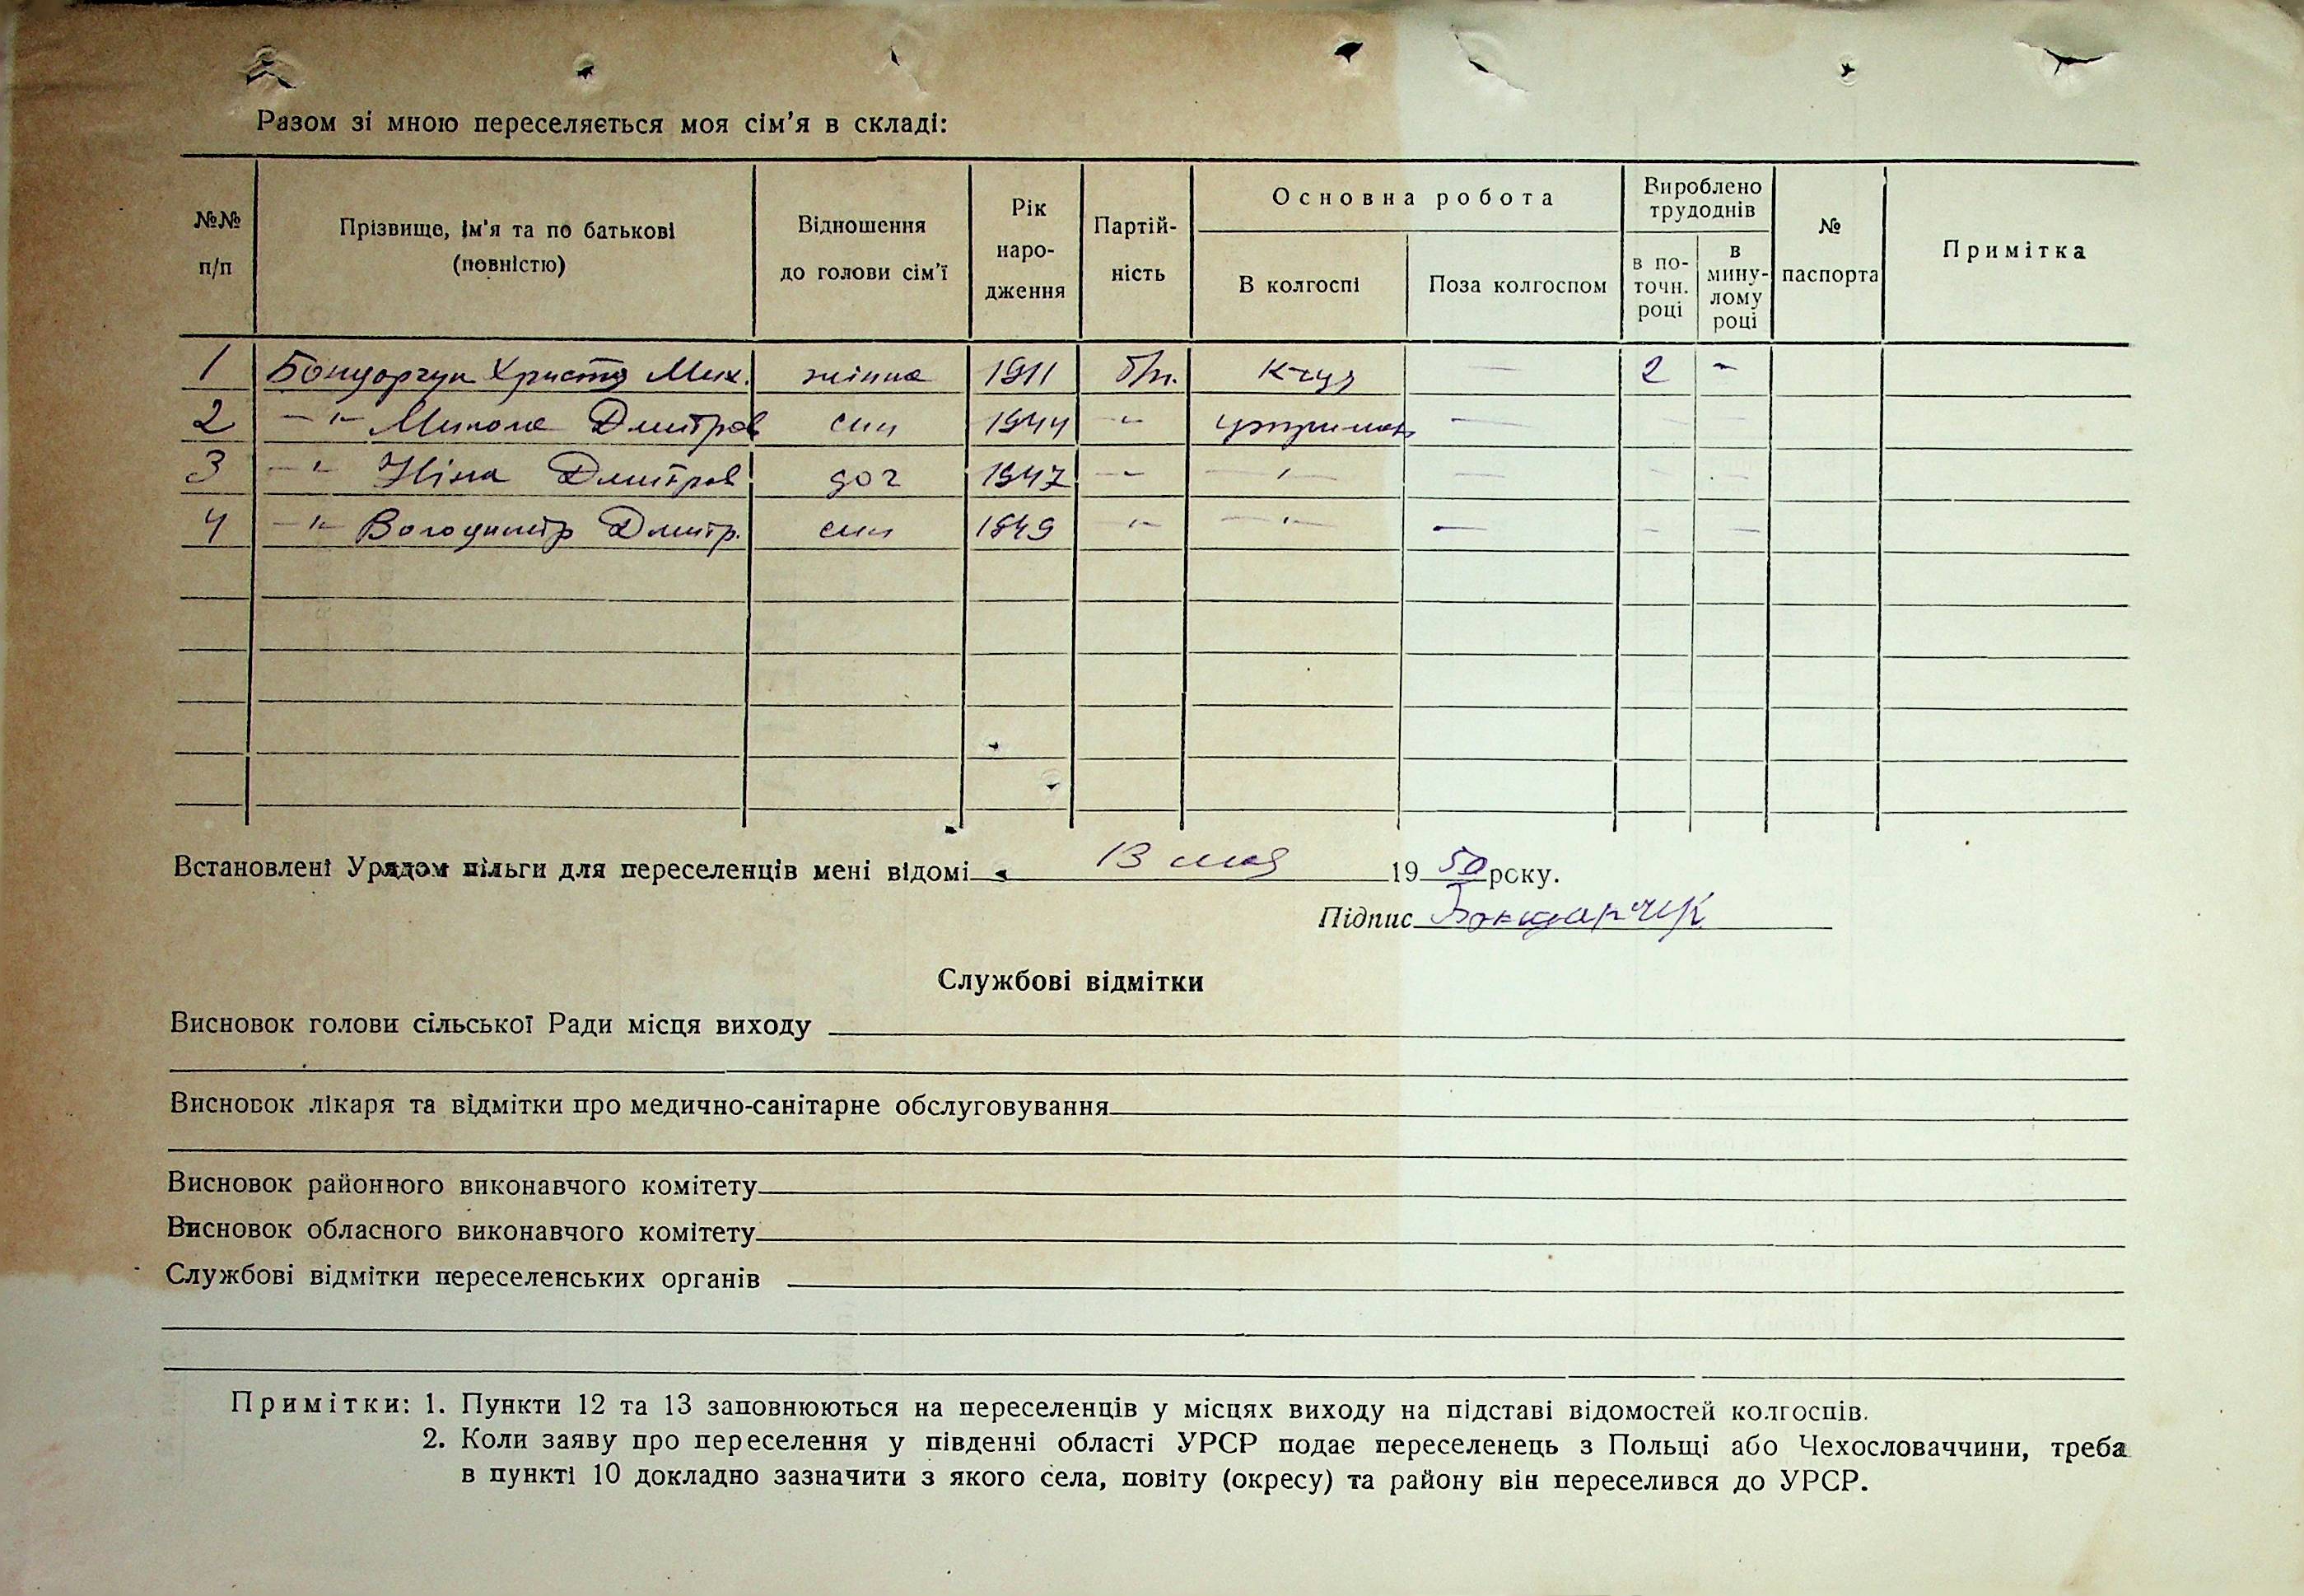 Разом зі мною переселяється моя сім'я в складі:
№№ п/п
Прізвище, ім'я та по батькові (повністю)
Відношення до голови сім'ї
Рік народження
Партійність
Основна робота
В колгоспі
Поза колгоспом
Вироблено трудоднів
в поточн. році
в минулому році
№ паспорта
Примітка
1 Бондарчук Христя Мих. жінка 1911 б/п. — 2 -
2 —"— Микола Дмитров син 1944 —"— —
3 —"— Ніна Дмитров доч 1947 —"— —"— —
4 —"— Володимир Дмитр. син 1949 —"— —"— — — —
Встановлені Урядом пільги для переселенців мені відомі 13 мая 1950 року.
Підпис Бондарчук
Службові відмітки
Висновок голови сільської Ради місця виходу
Висновок лікаря та відмітки про медично-санітарне обслуговування
Висновок районного виконавчого комітету
Висновок обласного виконавчого комітету
Службові відмітки переселенських органів
Примітки: 1. Пункти 12 та 13 заповнюються на переселенців у місцях виходу на підставі відомостей колгоспів.
2. Коли заяву про переселення у південні області УРСР подає переселенець з Польщі або Чехословаччини, треба
в пункті 10 докладно зазначити з якого села, повіту (окресу) та району він переселився до УРСР.